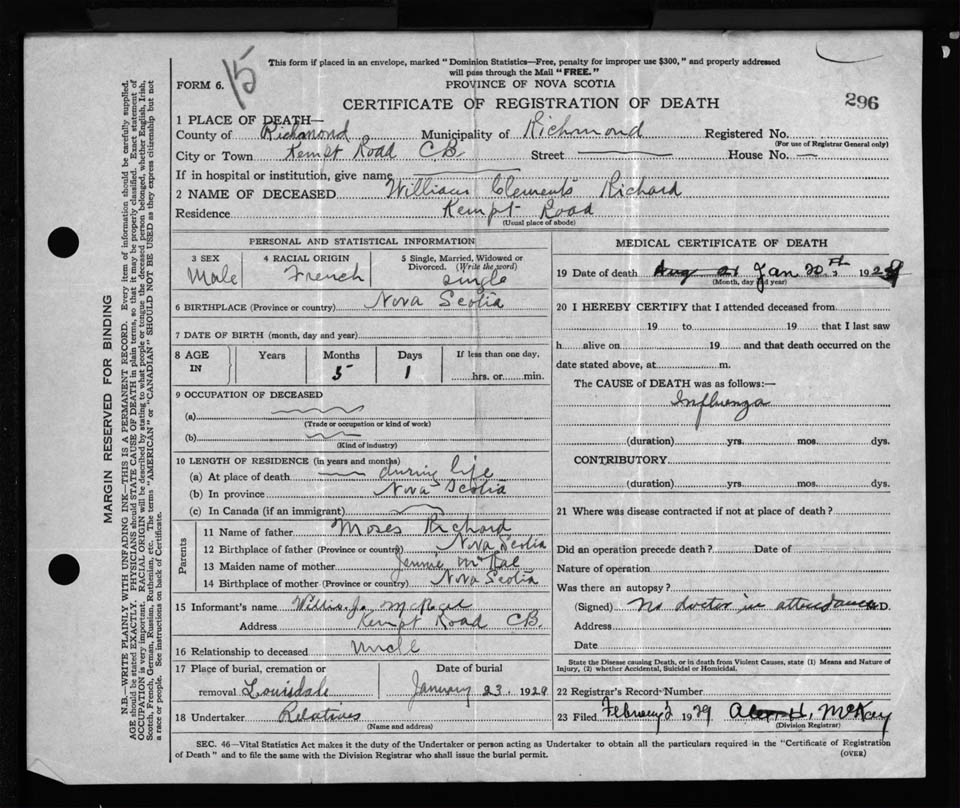 15
This form if placed in an envelope, marked "Dominion Statistics—Free, penalty for improper use $300," and properly addressed
will pass through the Mail "FREE."
FORM 6.
PROVINCE OF NOVA SCOTIA
CERTIFICATE OF REGISTRATION OF DEATH
296
1 PLACE OF DEATH—
County of Richmond Municipality of Richmond Registered No.
(For use of Registrar General only)
City or Town Kempt Road CB Street House No.
If in hospital or institution, give name
2 NAME OF DECEASED William Clements Richard
Residence Kempt Road
(Usual place of abode)
PERSONAL AND STATISTICAL INFORMATION
3 SEX 4 RACIAL ORIGIN 5 Single, Married, Widowed or Divorced. (Write the word)
Male French Single
6 BIRTHPLACE (Province or country) Nova Scotia
7 DATE OF BIRTH (month, day and year)
8 AGE IN Years Months Days If less than one day,
5 1 hrs. or min.
9 OCCUPATION OF DECEASED
(a)
(Trade or occupation or kind of work)
(b)
(Kind of industry)
10 LENGTH OF RESIDENCE (in years and months)
(a) At place of death during life
(b) In province Nova Scotia
(c) In Canada (if an immigrant)
Parents
11 Name of father Moses Richard
12 Birthplace of father (Province or country) Nova Scotia
13 Maiden name of mother Jennie
14 Birthplace of mother (Province or country) Nova Scotia
15 Informant's name
Address Kempt Road CB.
16 Relationship to deceased Uncle
17 Place of burial, cremation or Date of burial
removal Louisdale January 23, 1929
18 Undertaker Relatives
(Name and address)
MEDICAL CERTIFICATE OF DEATH
19 Date of death Jan 20th 1929
(Month, day and year)
20 I HEREBY CERTIFY that I attended deceased from
19 to 19 that I last saw
h alive on 19 and that death occurred on the
date stated above, at m.
The CAUSE of DEATH was as follows:—
Influenza
(duration) yrs. mos. dys.
CONTRIBUTORY
(duration) yrs. mos. dys.
21 Where was disease contracted if not at place of death?
Did an operation precede death? Date of
Nature of operation
Was there an autopsy?
(Signed) No doctor in attendance M.D.
Address
Date
State the Disease causing Death, or in death from Violent Causes, state (1) Means and Nature of
Injury, (2) whether Accidental, Suicidal or Homicidal.
22 Registrar's Record Number
23 Filed February 2 1929 McKay
(Division Registrar)
SEC. 46—Vital Statistics Act makes it the duty of the Undertaker or person acting as Undertaker to obtain all the particulars required in the "Certificate of Registration
of Death" and to file the same with the Division Registrar who shall issue the burial permit.
(OVER)
MARGIN RESERVED FOR BINDING
N.B.—WRITE PLAINLY WITH UNFADING INK—THIS IS A PERMANENT RECORD. Every item of information should be carefully supplied.
AGE should be stated EXACTLY. PHYSICIANS should STATE CAUSE OF DEATH in plain terms, so that it may be properly classified. Exact statement of
OCCUPATION is very important. RACIAL ORIGIN will be described by stating to what people or tongue the deceased person belonged, whether English, Irish,
Scotch, French, German, Russian, Ruthenian, etc. The terms "AMERICAN" or "CANADIAN" SHOULD NOT BE USED as they express citizenship but not
a race or people. See instructions on back of Certificate.